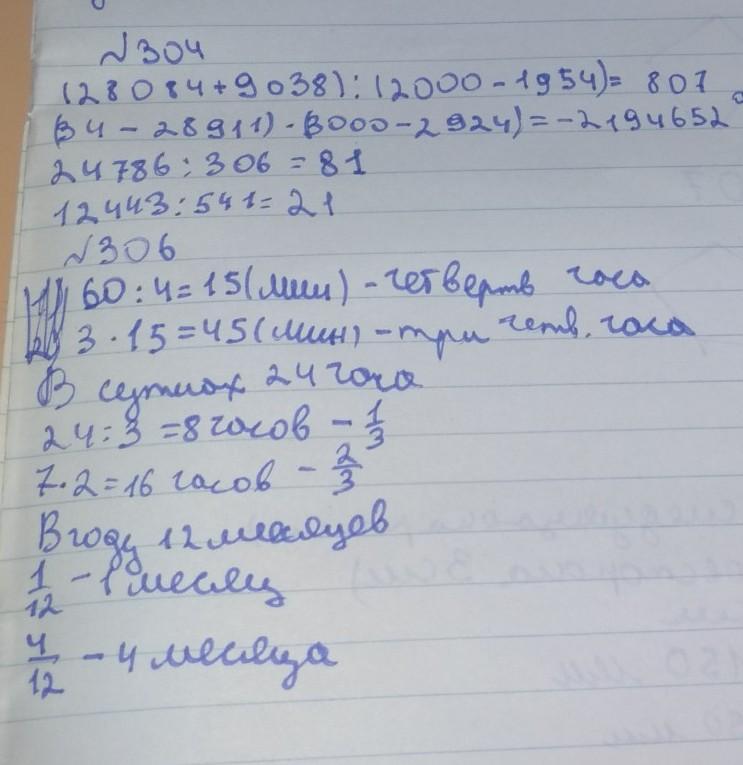 №304
(28084+9038):(2000-1954)=807
(34-28911)·(3000-2924)=-2194652
24786:306=81
12443:541=21
№306
60:4=15(мин)-четверть часа
3·15=45(мин)-три четв. часа
В сутках 24 часа
24:3=8 часов - 1/3
7·2=16 часов - 2/3
В году 12 месяцев
1/12 - 1 месяц
4/12 - 4 месяца